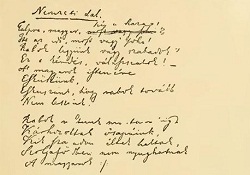 Nemzeti dal.
hí a haza!
Talpra magyar,
Itt az idő, most vagy soha!
Rabok legyünk vagy szabadok?
Ez a kérdés, válaszszatok! –
A magyarok istenére
Esküszünk,
Esküszünk, hogy rabok tovább
Nem leszünk!
Rabok
Kárhozottak ősapáink,
Kik szabadon éltek haltak,
Szolgaföldben nem nyughatnak
A magyarok :/